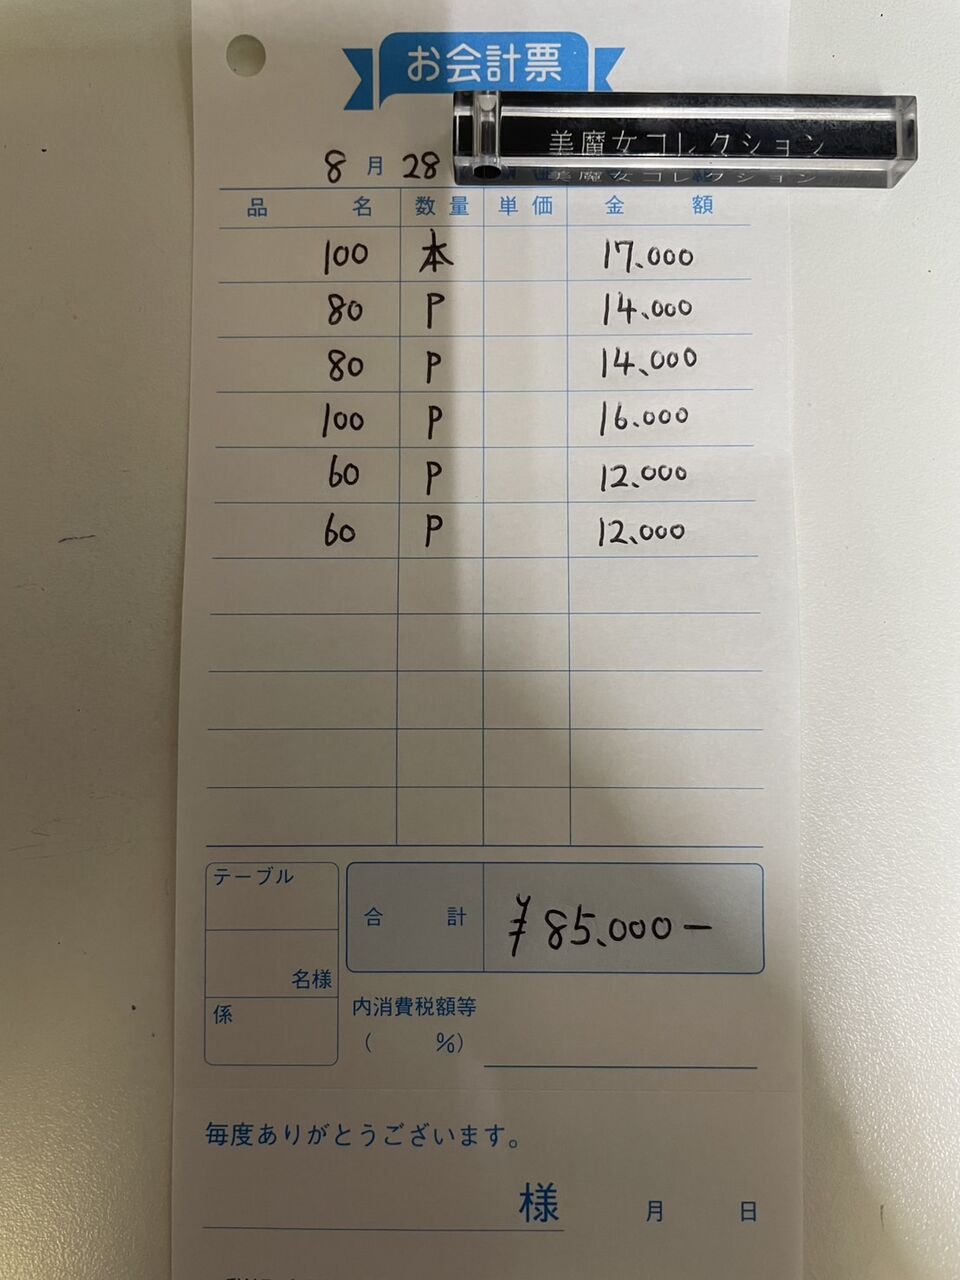 お会計票
美魔女コレクション
美魔女コレクション
8月28
品名 数量 単価 金額
100 本 17.000
80 P 14.000
80 P 14.000
100 P 16.000
60 P 12.000
60 P 12.000
テーブル
名様
係
合計 ¥85.000ー
内消費税額等
( %)
毎度ありがとうございます。
様 月 日